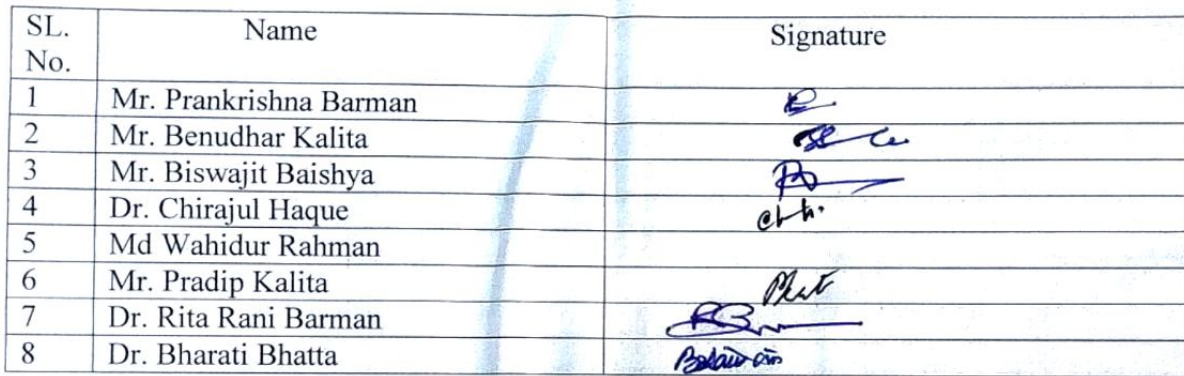 SL. No. Name Signature
1 Mr. Prankrishna Barman
2 Mr. Benudhar Kalita
3 Mr. Biswajit Baishya
4 Dr. Chirajul Haque
5 Md Wahidur Rahman
6 Mr. Pradip Kalita
7 Dr. Rita Rani Barman
8 Dr. Bharati Bhatta